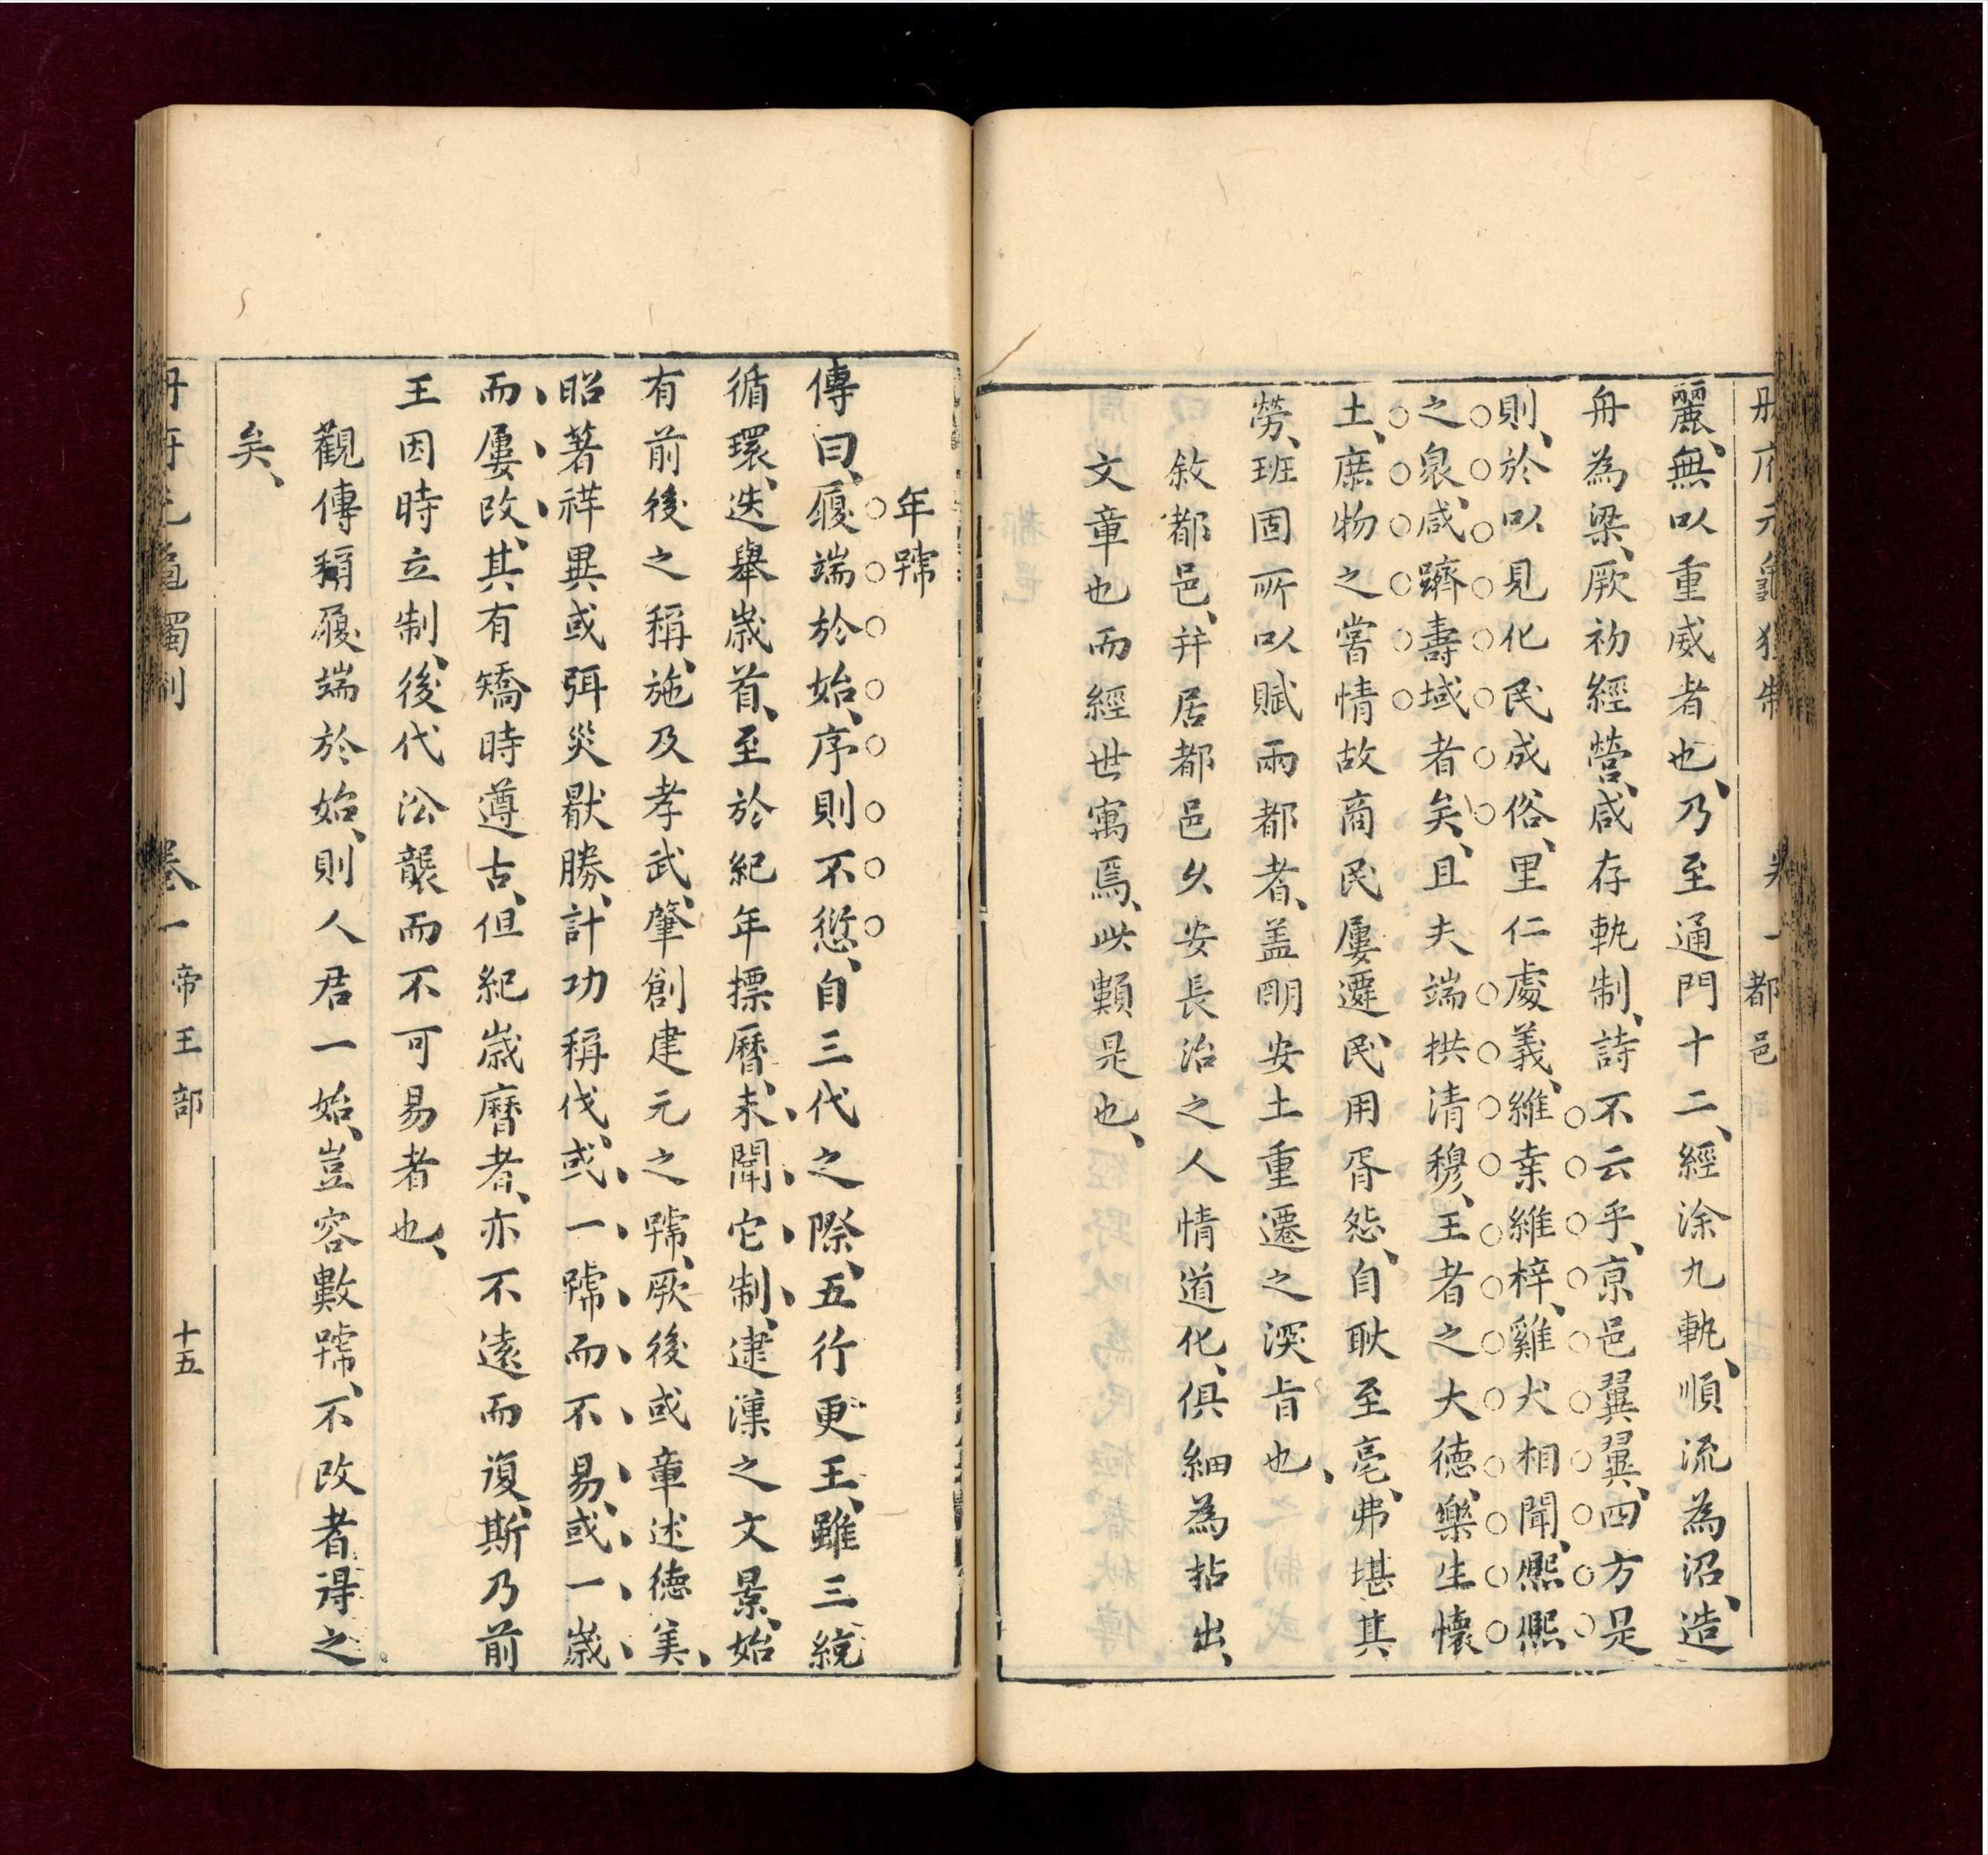 冊府元龜獨制 卷一 都邑
麗、無以重威者也、乃至通門十二、經涂九軌、順流為沼、造
舟為梁、厥初經營、咸存軌制、詩不云乎、亰邑翼翼、四方是
則、於以見化民成俗、里仁處義、維桒維梓、雞犬相聞、熈熈
之泉、咸躋壽域者矣、且夫端拱清穆、王者之大德、樂生懷
土、庶物之嘗情故商民屢遷民用胥怨、自耿至亳、弗堪其
勞、班固所以賦兩都者、盖明安土重遷之深旨也、
敘都邑、幷居都邑乆安長治之人情道化、俱細為拈出、
文章也而經世寓焉、此類是也、
年號
傳曰、履端於始、序則不愆、自三代之際、五行更王、雖三統
循環、迭舉歲首、至於紀年摽曆、未聞它制、逮漢之文景、始
有前後之稱、施及孝武、肇創建元之號、厥後或章述德美、
昭著祥異或弭災厭勝、計功稱伐、或一號而不易、或一歲
而屢改、其有矯時遵古、但紀歲曆者、亦不遠而復、斯乃前
王因時立制、後代㳂襲而不可易者也、
觀傳稱履端於始、則人君一始、豈容數號、不改者得之
矣、
冊府元龜獨制 卷一 帝王部 十五